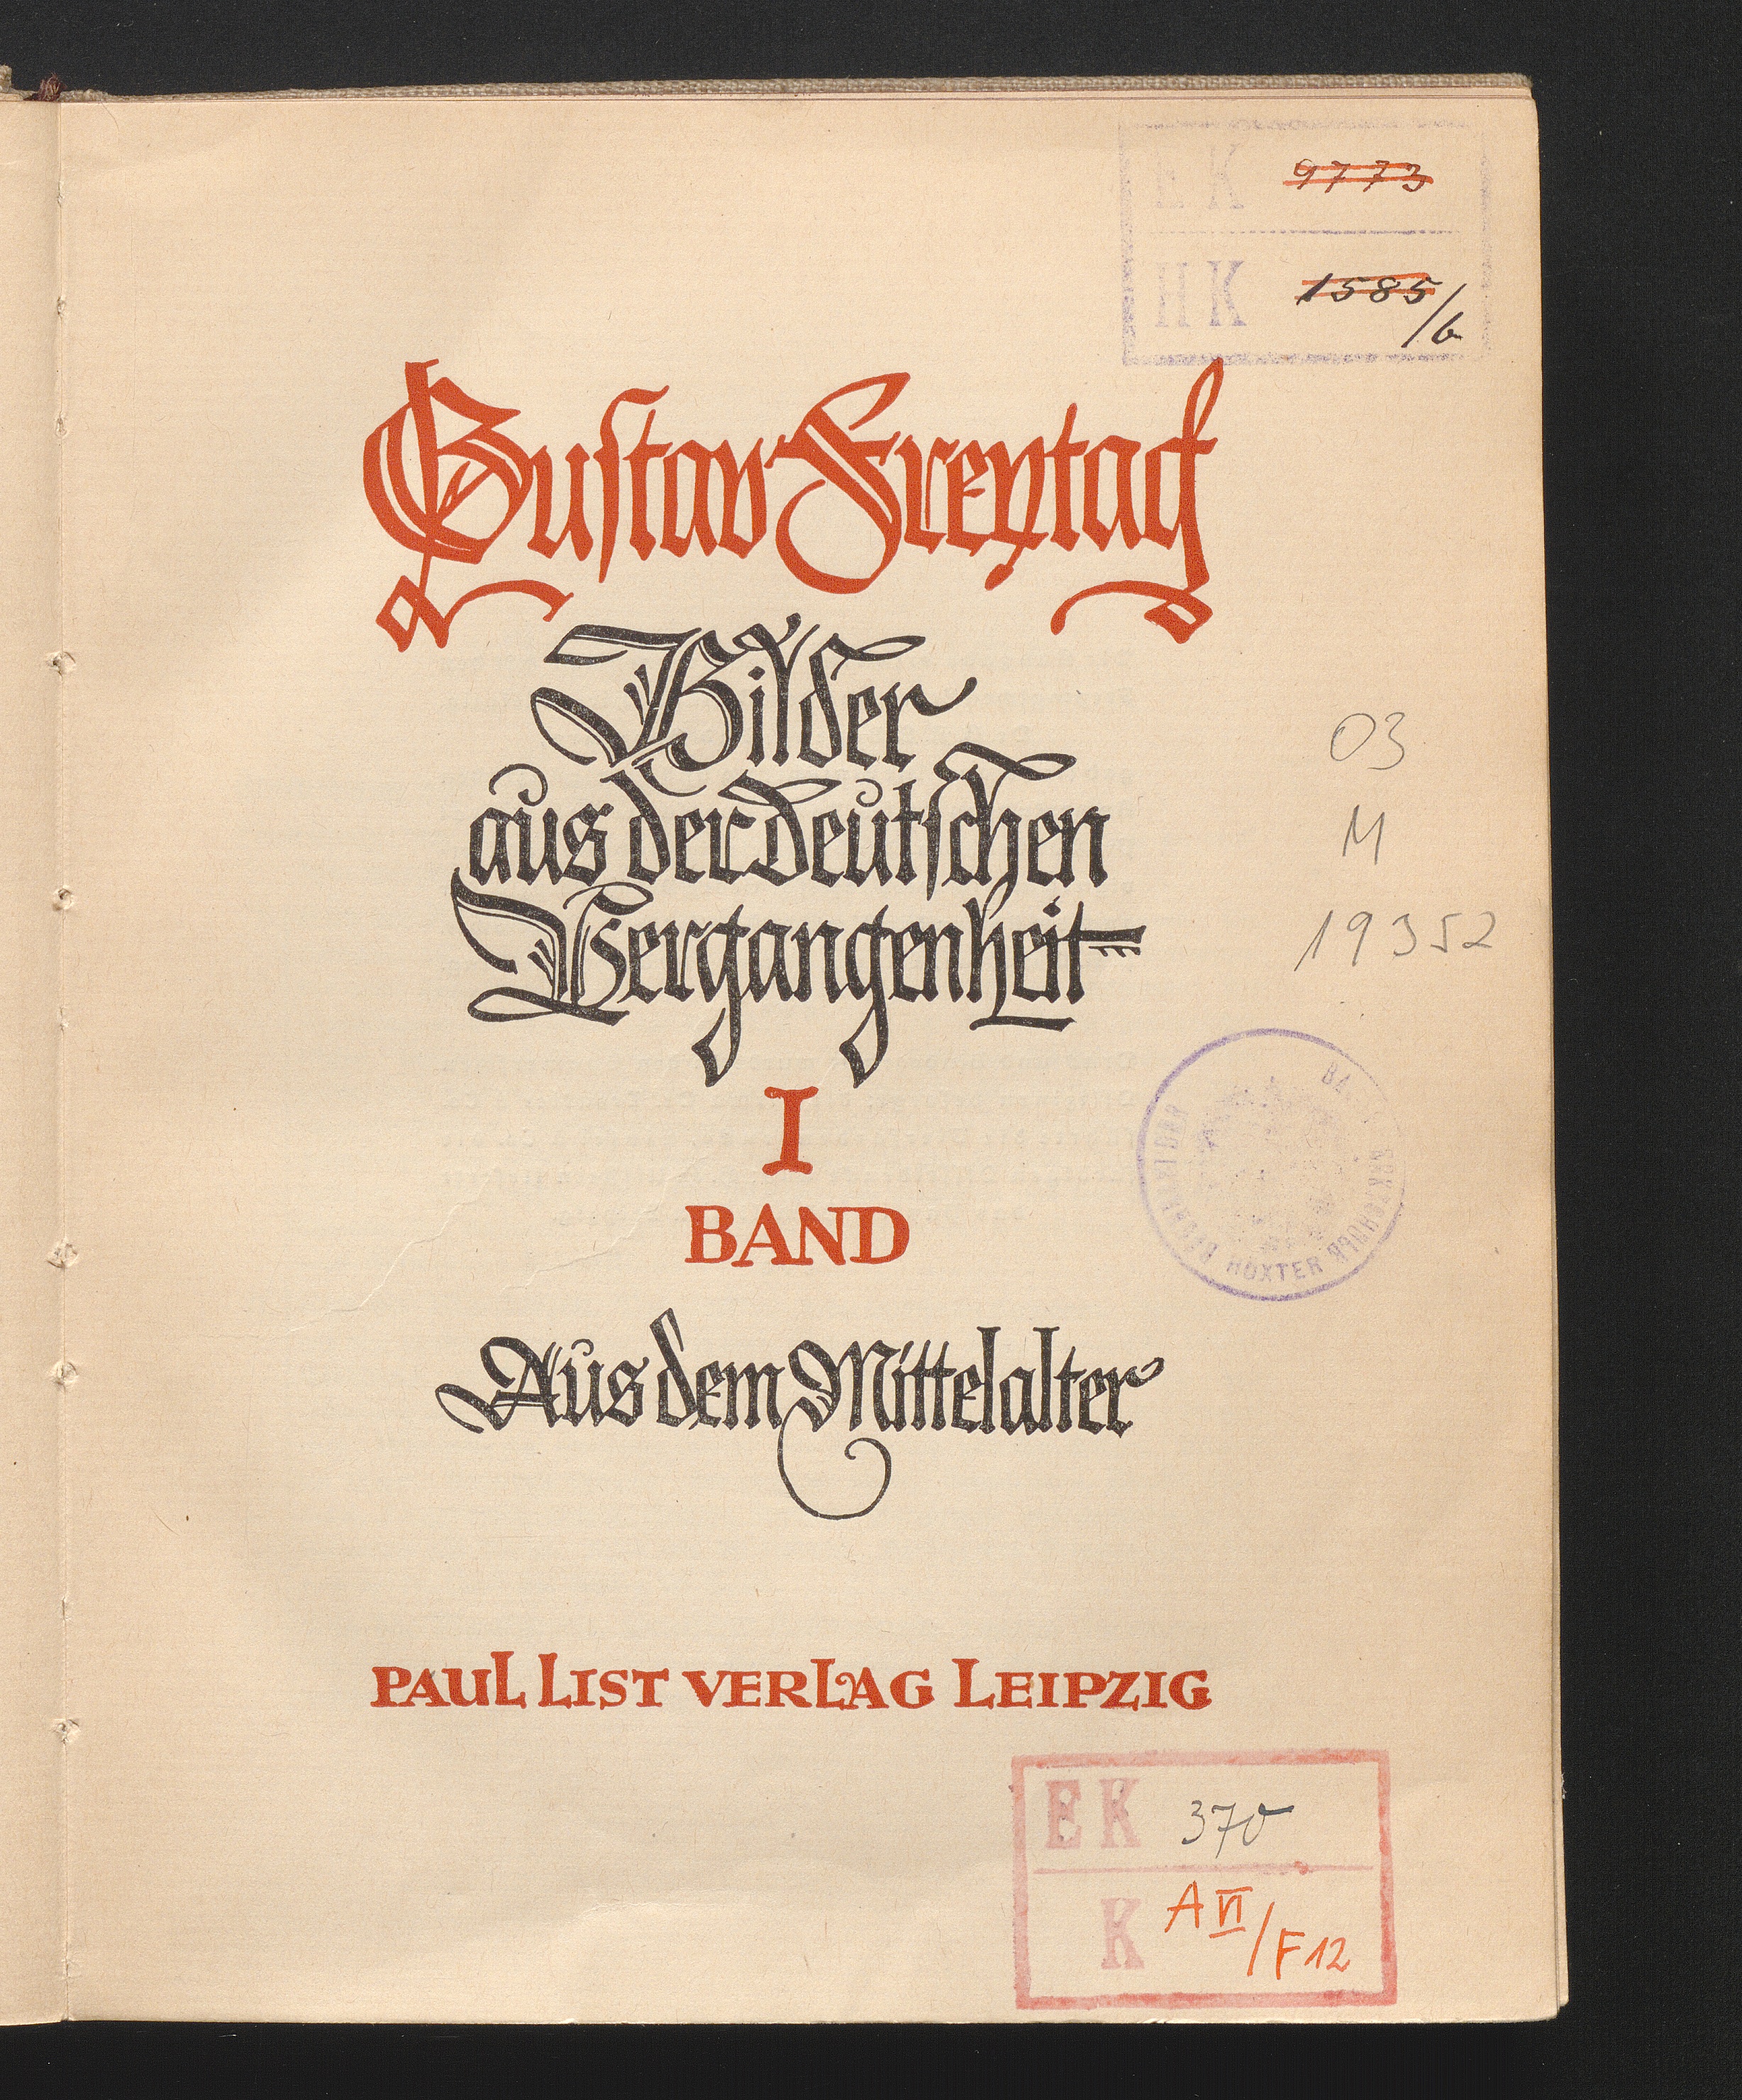 EK 9773
II K 1585/6
Gustav Freytag
Bilder
aus der deutschen
Vergangenheit
I
BAND
Aus dem Mittelalter
03
M
19352
BÜCHEREI DER
HÖXTER
PAUL LIST VERLAG LEIPZIG
EK 370
K A VI/F12